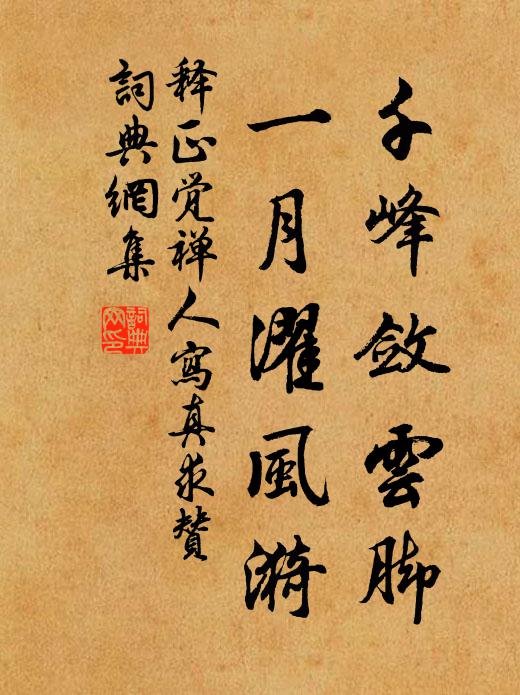 千峰斂雲脚
一月濯風漪
释正觉禅人寫真求贊
詞典網集
詞典網印